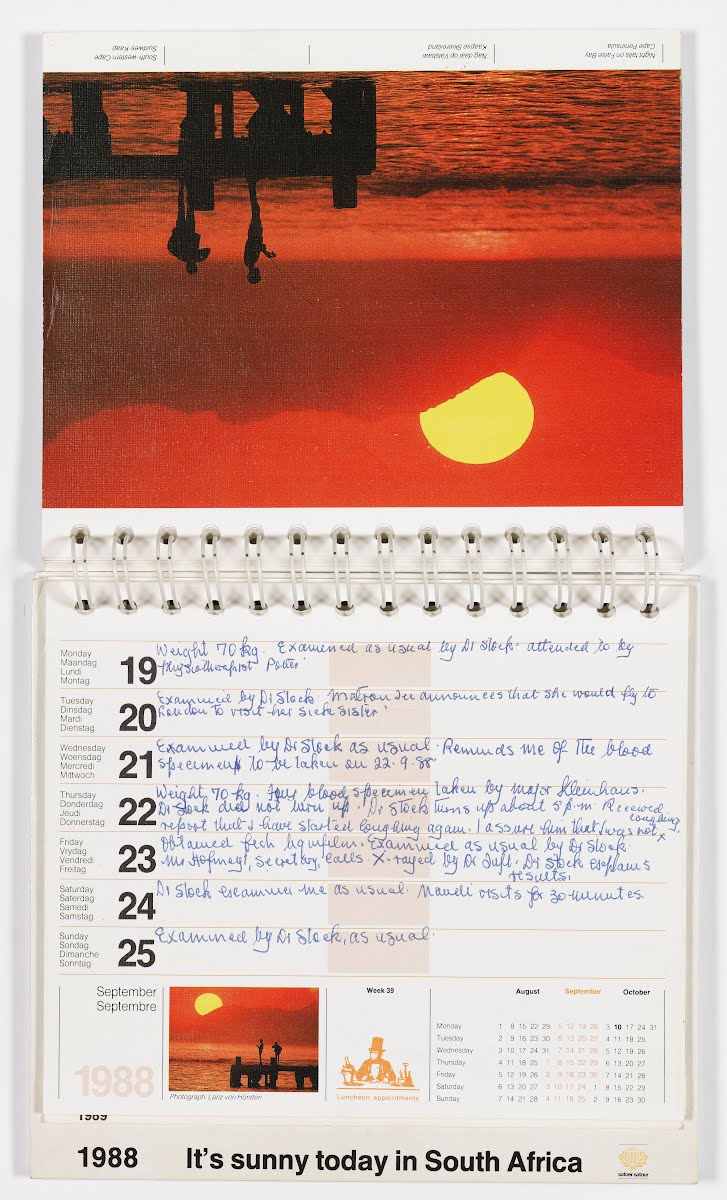 Night falls on False Bay
Cape Peninsula
Nag daal op Valsbaai
Kaapse Skiereiland
South-western Cape
Suidwes-Kaap
Monday
Maandag
Lundi
Montag
19
Weight 70 kg. Examined as usual by Dr Stock. attended to by
Physiotherapist Potter
Tuesday
Dinsdag
Mardi
Dienstag
20
Examined by Dr Stock. Matron announces that she would fly to
London to visit her sick sister
Wednesday
Woensdag
Mercredi
Mittwoch
21
Examined by Dr Stock as usual. Reminds me of the blood
specimen to be taken on 22.9.88
Thursday
Donderdag
Jeudi
Donnerstag
22
Weight, 70 kg. blood specimen taken by Major Kleinhaus.
Dr Stock did not turn up. Dr Stock turns up about 5 p.m. Received
report that I have started coughing again. I assure him that I was not x
coughing.
Friday
Vrydag
Vendredi
Freitag
23
Obtained hqm film. Examined as usual by Dr Stock.
Mr Hofmeyr, Secretary, calls X-rayed by Dr Dr Stock explains
results.
Saturday
Saterdag
Samedi
Samstag
24
Dr Stock examines me as usual. Nandi visits for 30 minutes.
Sunday
Sondag
Dimanche
Sonntag
25
Examined by Dr Stock, as usual.
September
Septembre
1988
Photograph: Lanz von Hörsten
Week 39
Luncheon appointments
August September October
Monday 1 8 15 22 29 5 12 19 26 3 10 17 24 31
Tuesday 2 9 16 23 30 6 13 20 27 4 11 18 25
Wednesday 3 10 17 24 31 7 14 21 28 5 12 19 26
Thursday 4 11 18 25 1 8 15 22 29 6 13 20 27
Friday 5 12 19 26 2 9 16 23 30 7 14 21 28
Saturday 6 13 20 27 3 10 17 24 1 8 15 22 29
Sunday 7 14 21 28 4 11 18 25 2 9 16 23 30
1989
1988 It's sunny today in South Africa
satour satoer